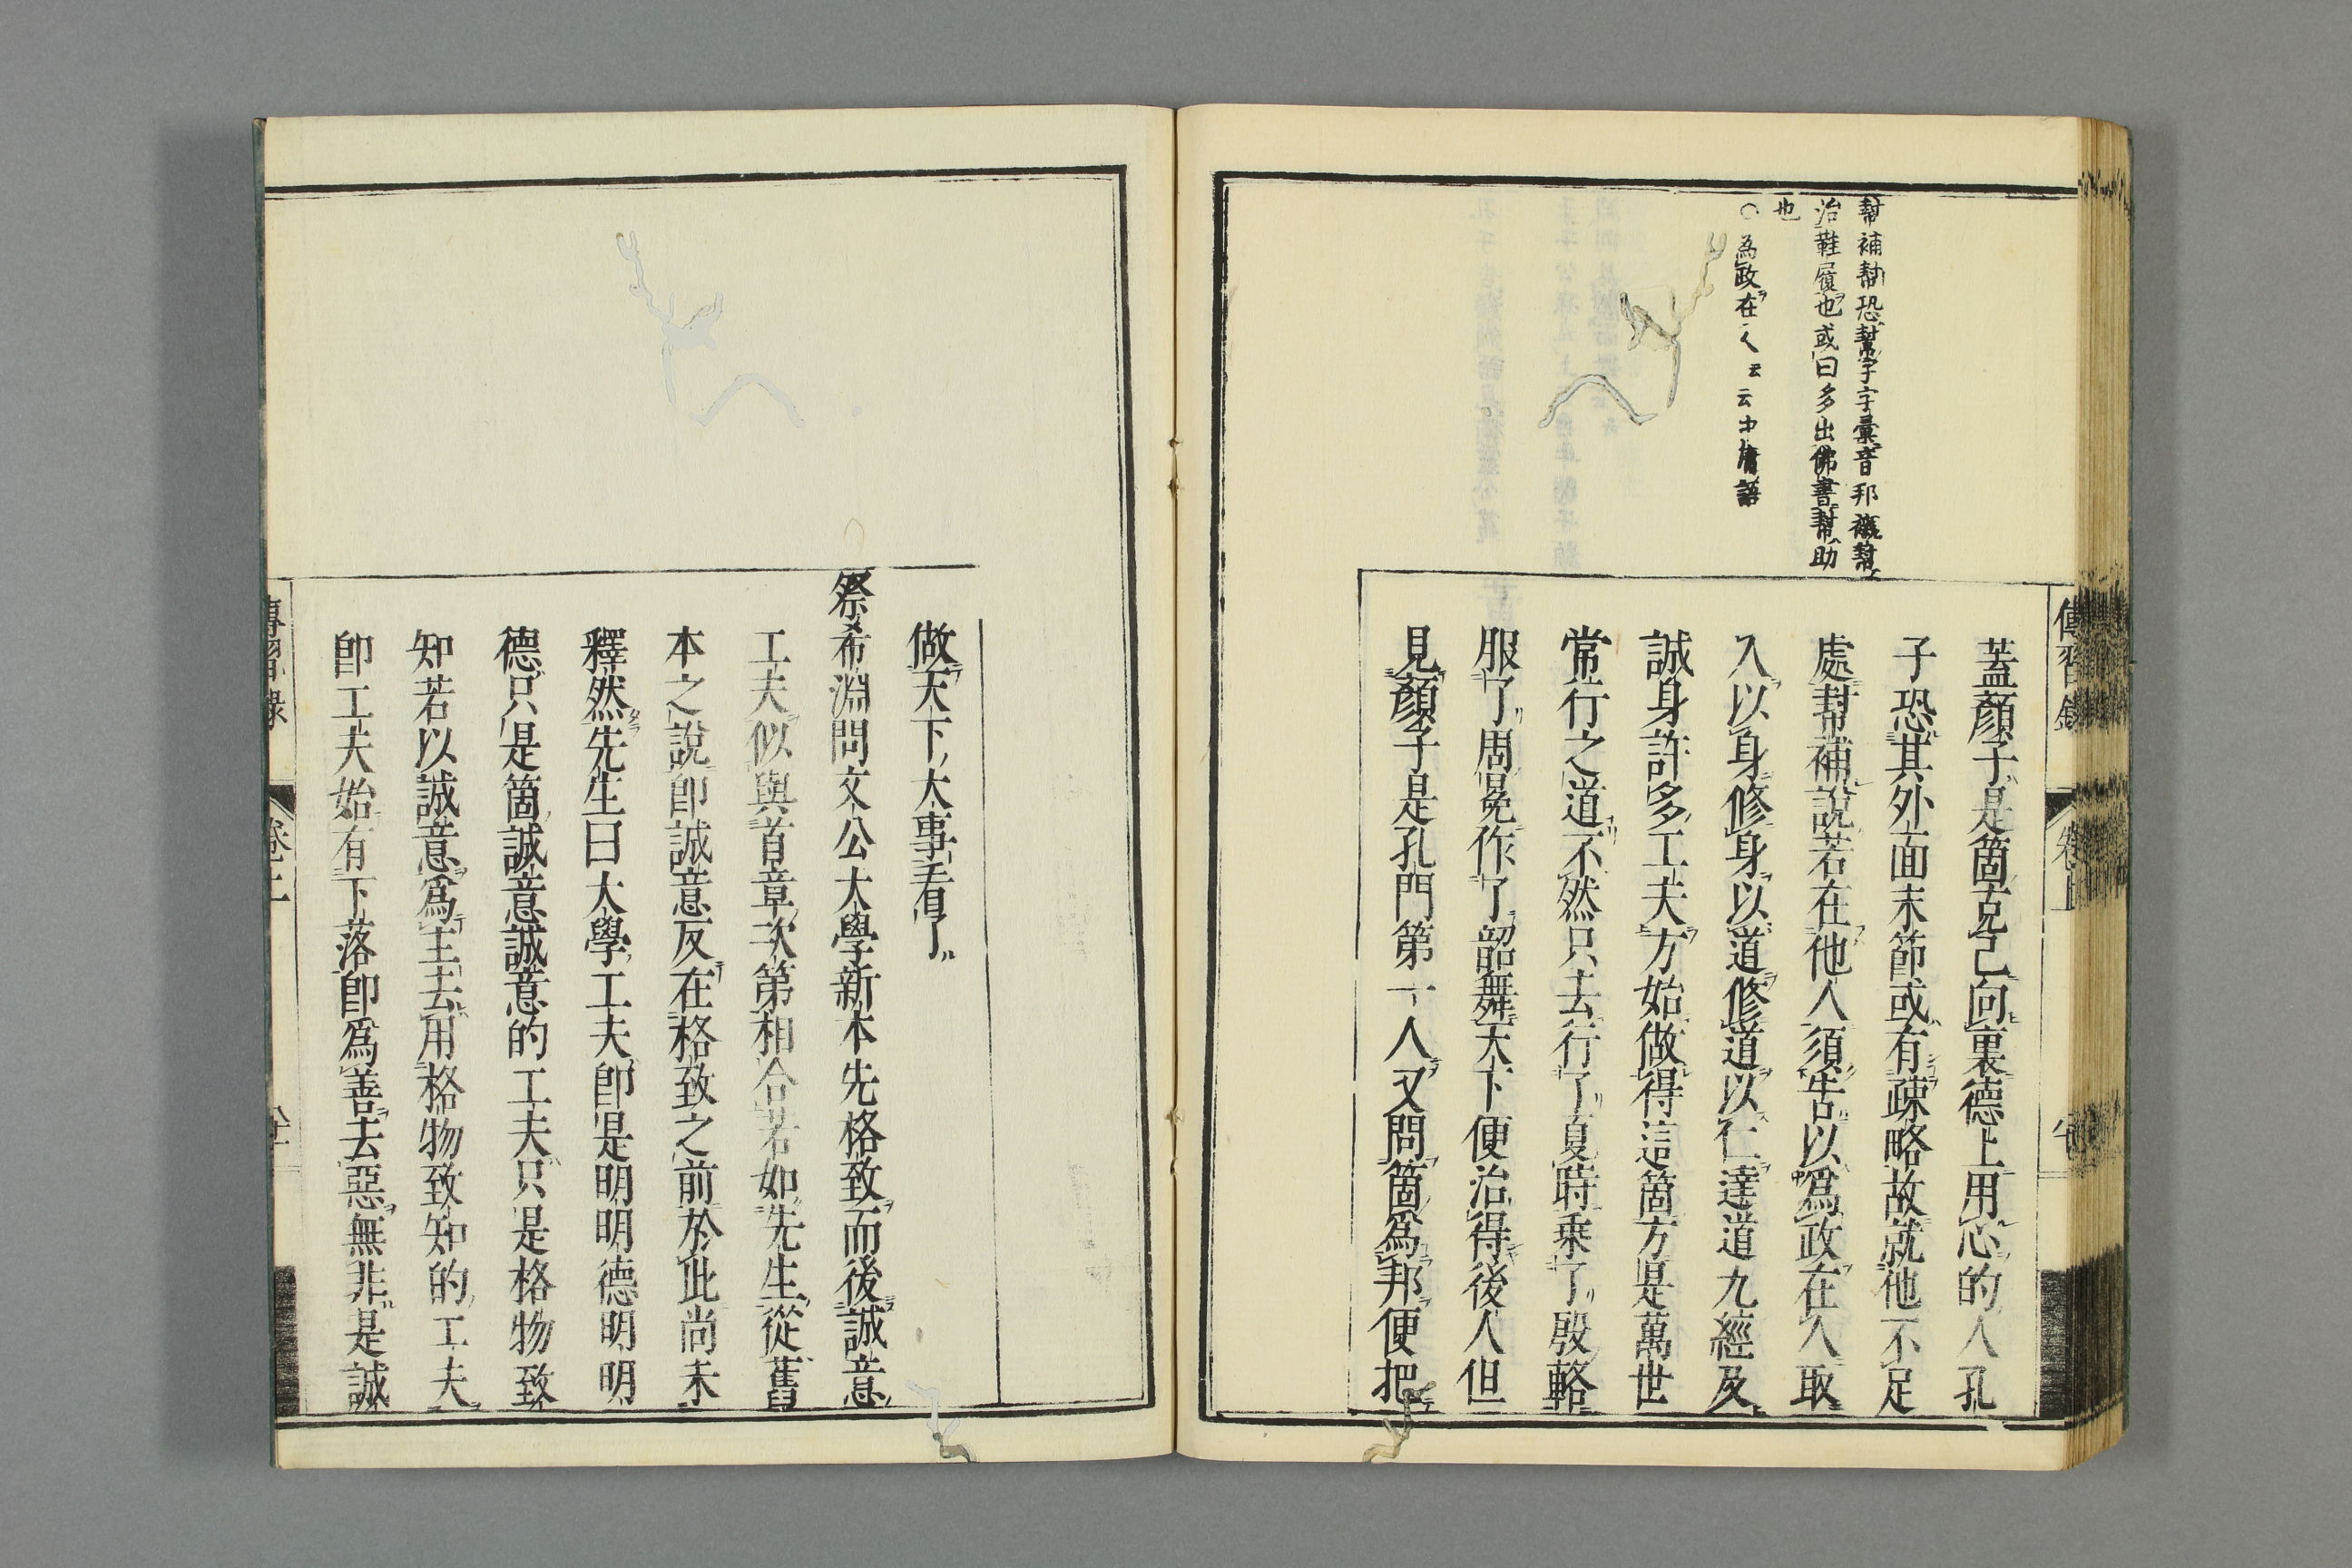 幇補幇恐幫字字彙音邦衣治鞋履也或曰多出佛書幇助也
○為政在人云云中庸語
傳習錄
卷上
蓋顏子是箇克己向裏德上用心的人孔
子恐其外面末節或有疎略故就他不足
處幇補說若在他人須告以爲政在人取
人以身修身以道修道以仁達道九經及
誠身許多工夫方始做得這箇方是萬世
常行之道不然只去行了夏時乗了殷輅
服了周冕作了韶舞天下便治得後人但
見顏子是孔門第一人又問箇爲邦便把
做天大事看了
祭希淵問文公大學新本先格致而後誠意
工夫似與首章次第相合若如先生從舊
本之說卽誠意反在格致之前於此尚未
釋然先生曰大學工夫卽是明明德明明
德只是箇誠意誠意的工夫只是格物致
知若以誠意爲主去用格物致知的工夫
卽工夫始有下落卽爲善去惡無非是誠
傳習錄